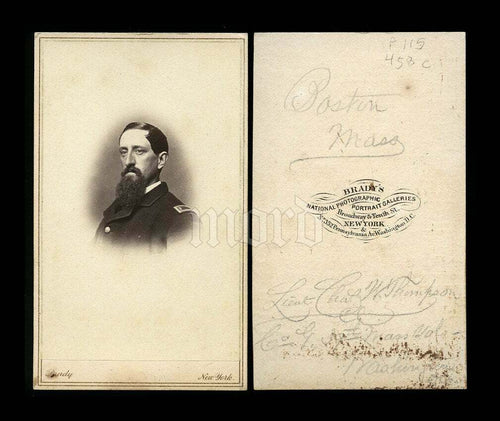 Brady
New York
P 115
458 c
Boston
Mass
BRADY'S
NATIONAL PHOTOGRAPHIC
PORTRAIT GALLERIES
Broadway & Tenth St.
NEW YORK
&
No. 352 Pennsylvania Av. Washington D.C.
Lieut Chas W. Thompson
Co
Vols
Washington
moro